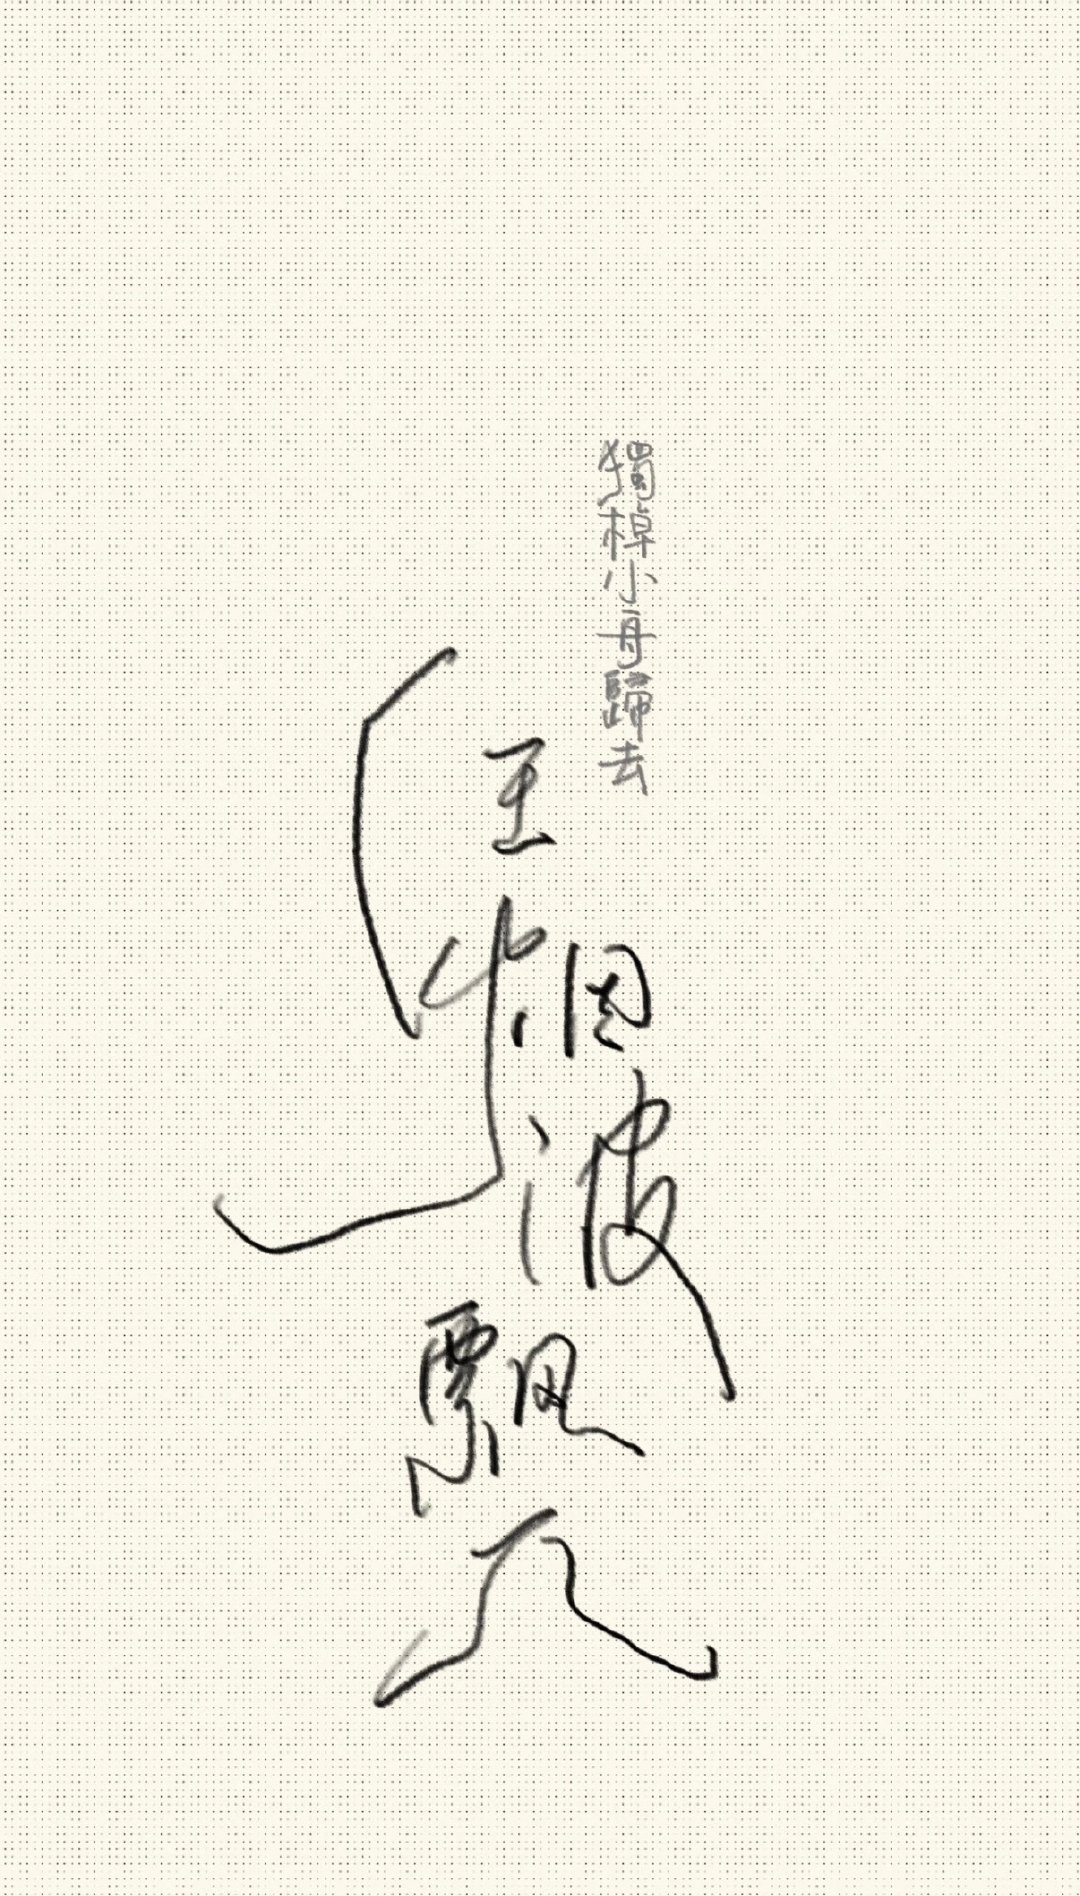 獨棹小舟歸去
任烟波飄兀